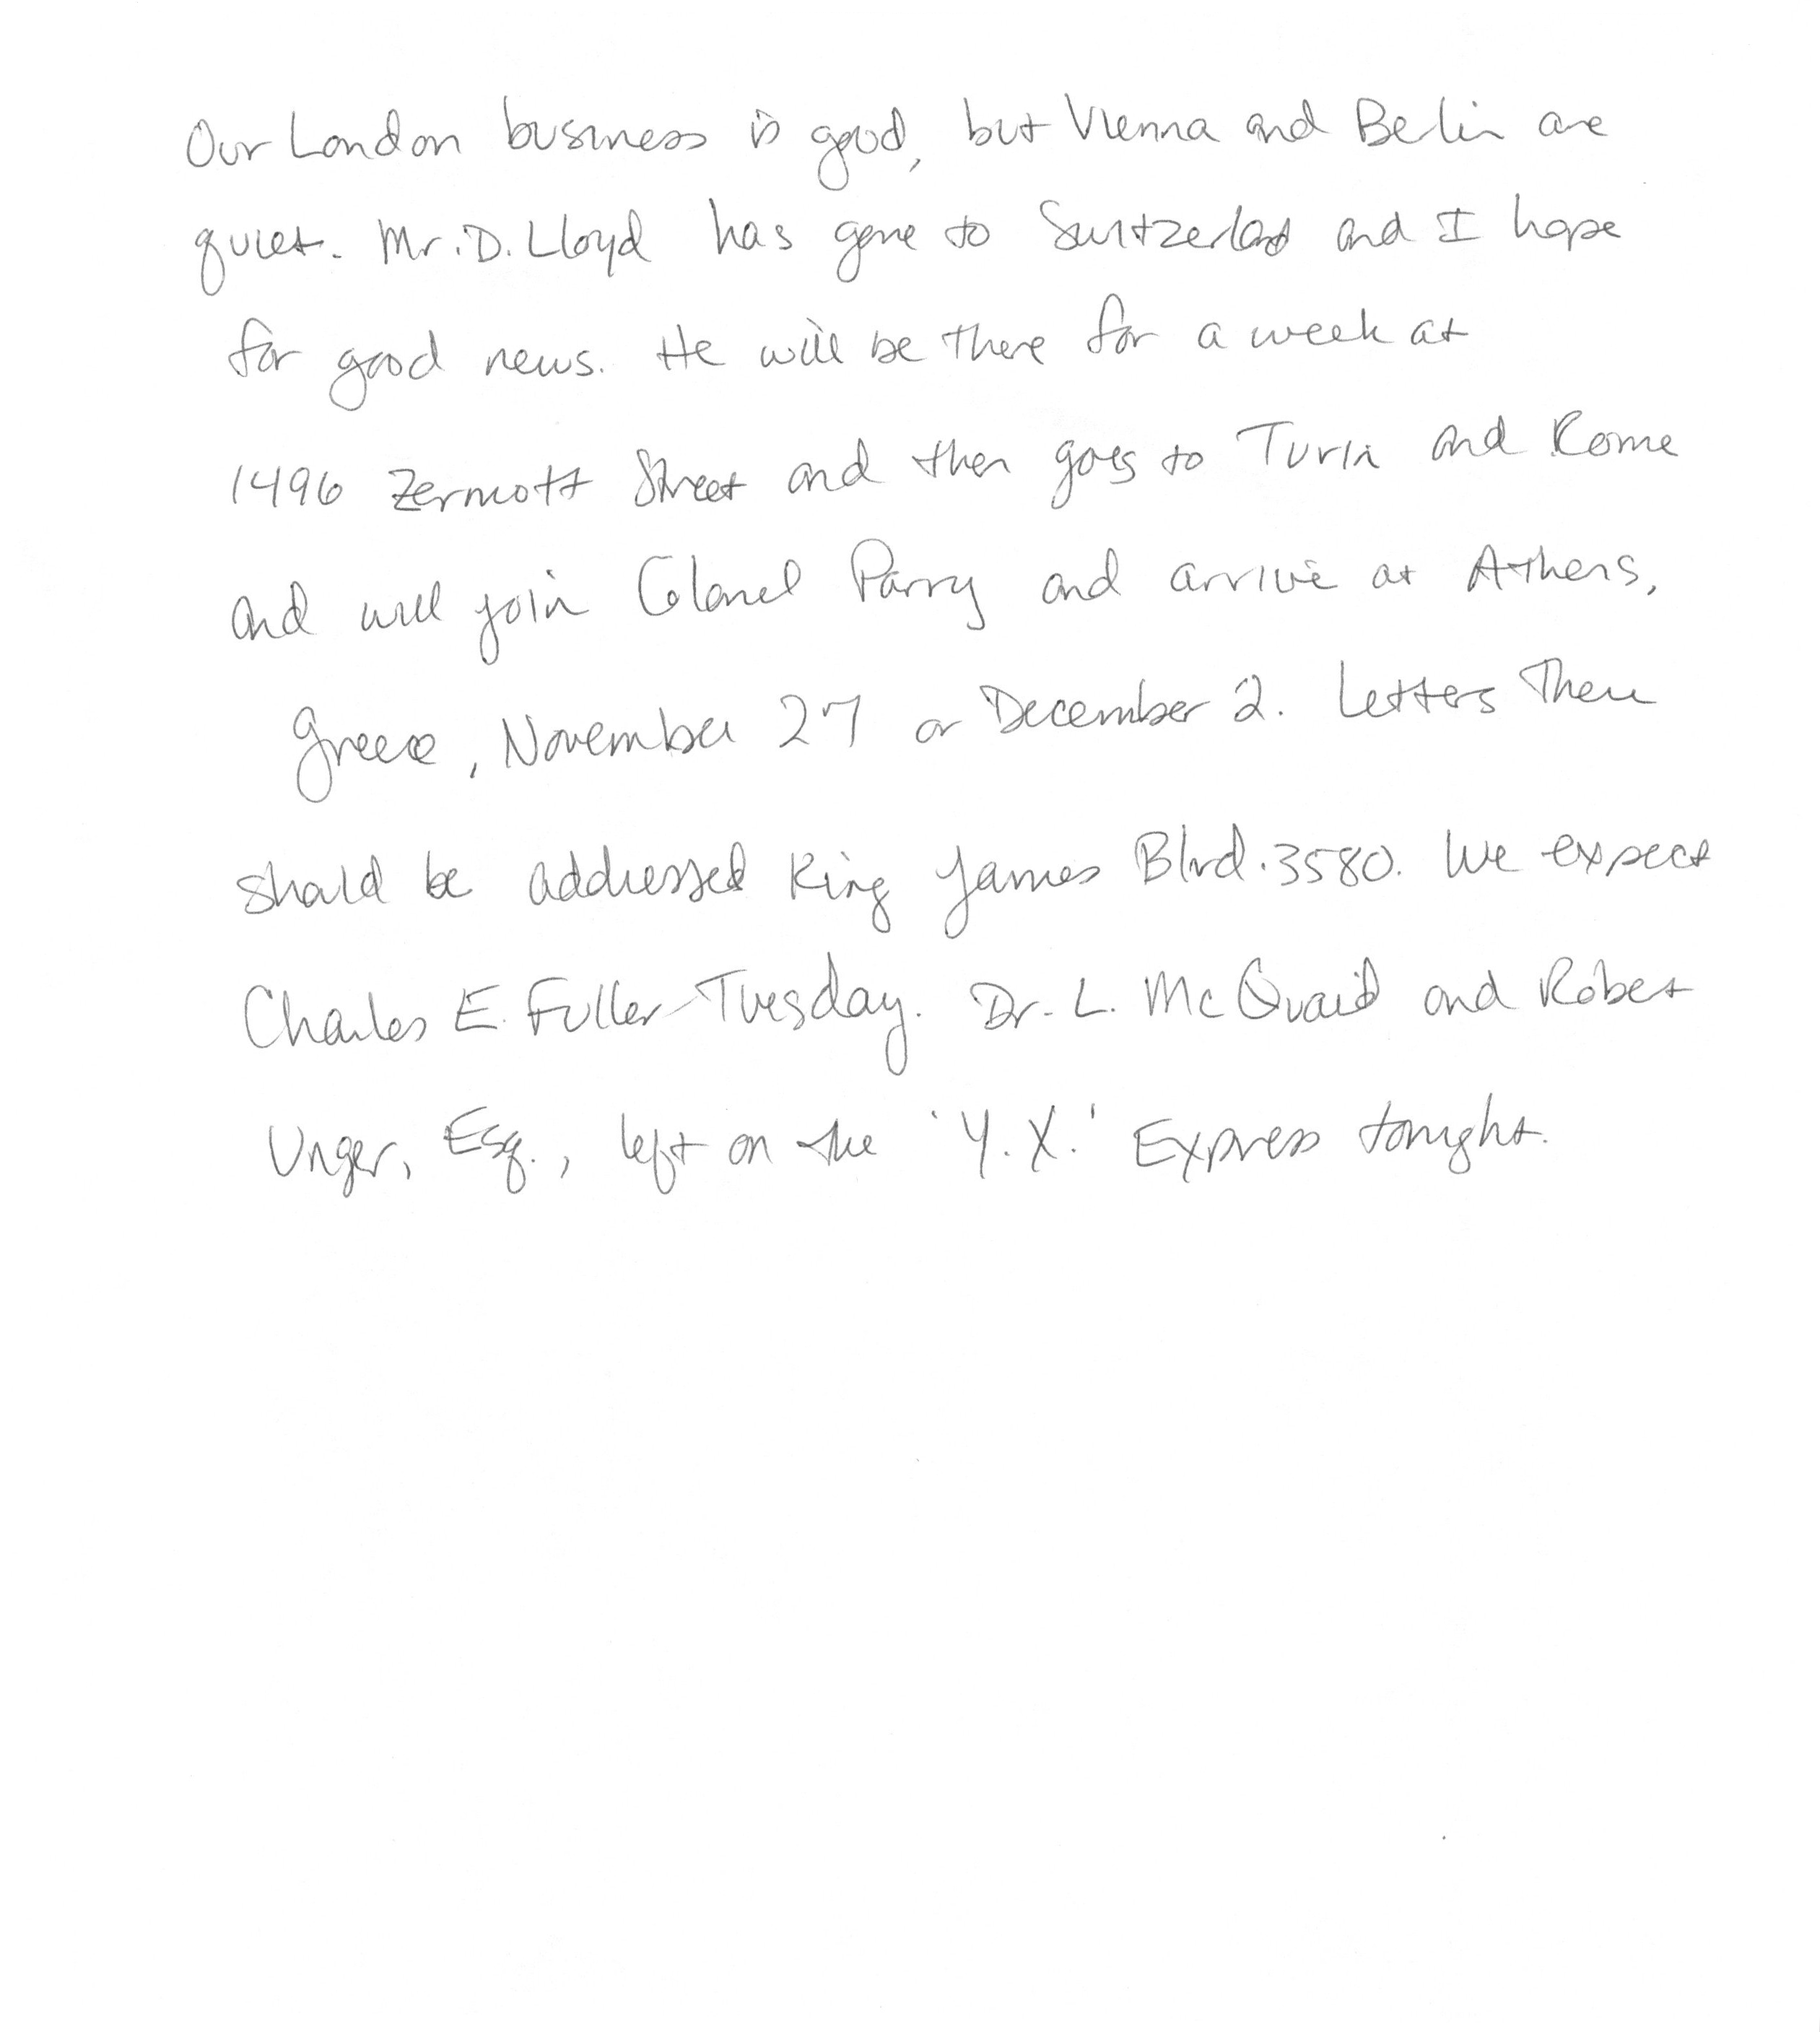 Our London business is good, but Vienna and Berlin are
quiet. Mr. D. Lloyd has gone to Switzerland and I hope
for good news. He will be there for a week at
1496 Zermott Street and then goes to Turin and Rome
and will join Colonel Parry and arrive at Athens,
Greece, November 27 or December 2. Letters there
should be addressed King James Blvd. 3580. We expect
Charles E. Fuller Tuesday. Dr. L. McQuaid and Robert
Unger, Esq., left on the 'Y.X.' Express tonight.